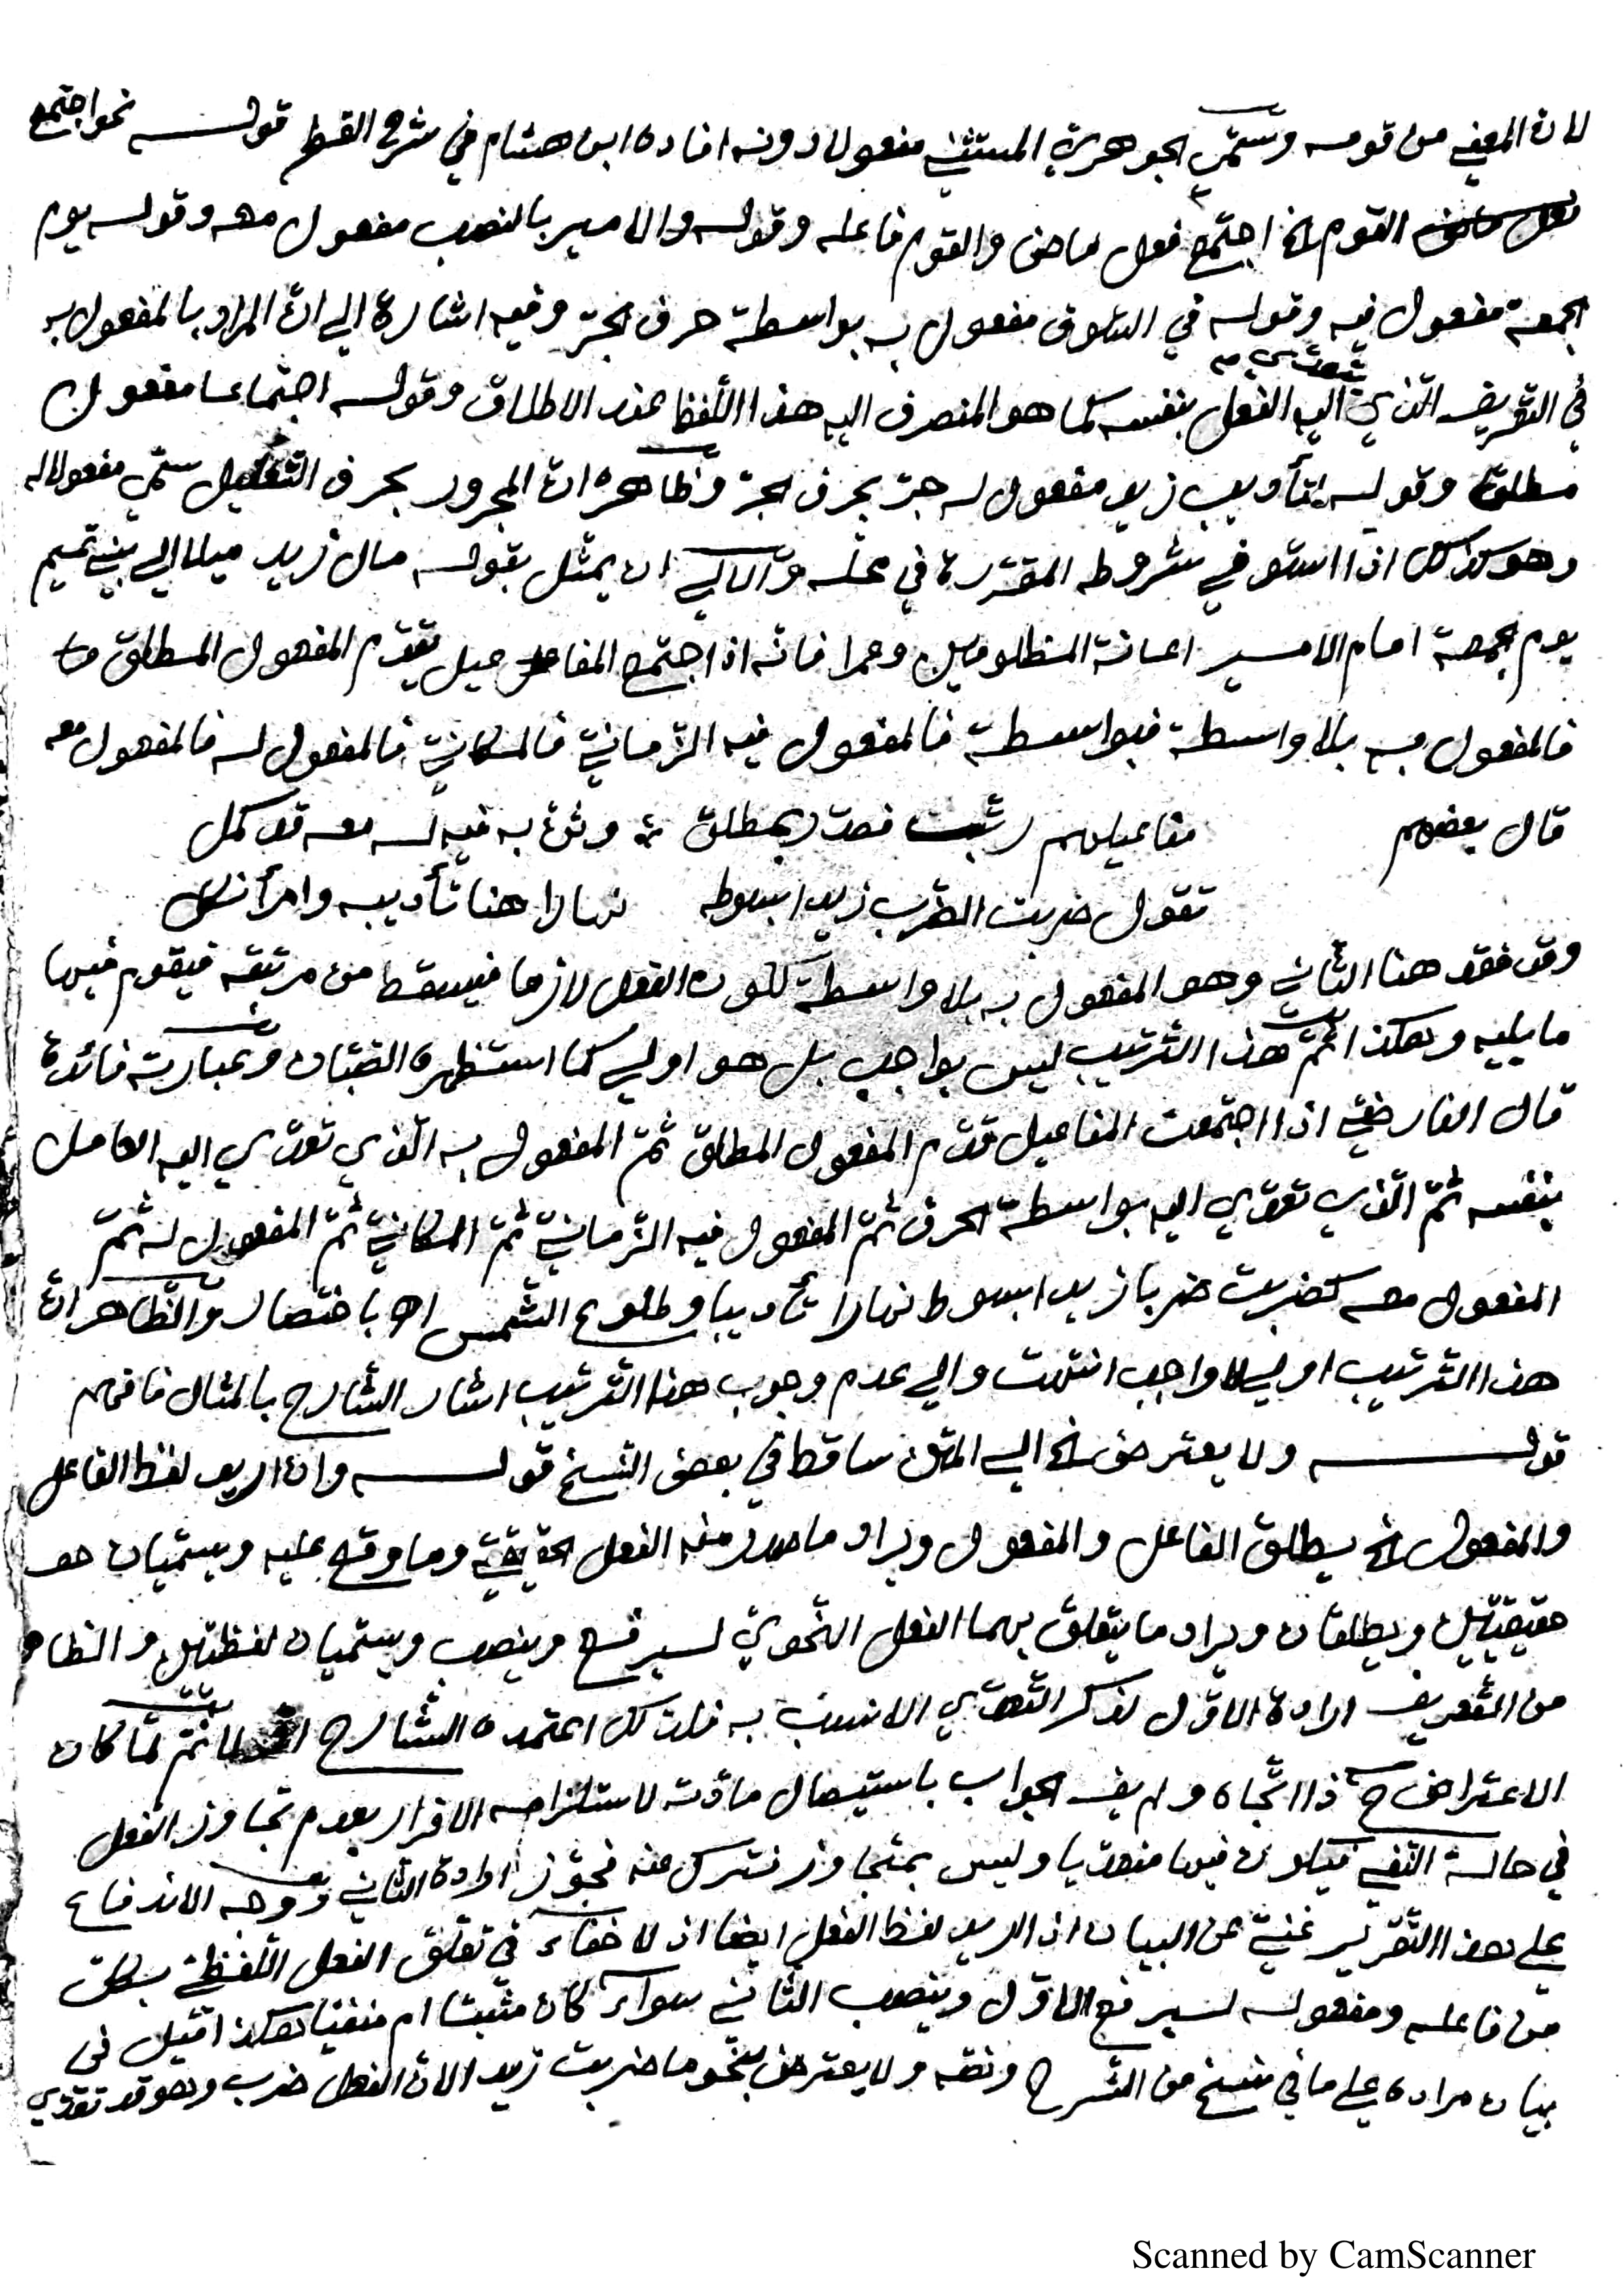 لان المعنى من قومه وسمى الجوهري المستثنى مفعولا دونه افاده ابن هشام في شرح القطر قوله نحو اجتمع
القوم الخ اجتمع فعل ماض والقوم فاعله وقوله والامير بالنصب مفعول معه وقوله يوم
الجمعة مفعول فيه وقوله في السوق مفعول به بواسطة حرف الجرّ وفيه اشارة الى انّ المراد بالمفعول به
في التعريف الّذي تعدّى اليه الفعل بنفسه كما هو المنصرف اليه هذا اللّفظ عند الاطلاق وقوله اجتماعا مفعول
مطلق وقوله لتأديب زيد مفعول له جرّ بحرف الجرّ وظاهره انّ المجرور بحرف التعليل سمّي مفعولا له
وهو كذلك اذا استوفى شروطه المقرّرة في محلّه والاولى ان يمثّل بقوله مال زيد ميلا الى بني تميم
يوم الجمعة امام الامير اعانة المظلومين وعمرا فانّه اذا اجتمع المفاعيل تقدّم المفعول المطلق
فالمفعول به بلا واسطة فبواسطة فالمفعول فيه الزّمانيّ فالمكانيّ فالمفعول له فالمفعول معه
قال بعضهم مفاعيلهم رتّبت فصدّر بمطلق وثنّ به فيه له معه قد كمل
تقول ضربت الضّرب زيدا بسوطه نهارا هنا تأديبه وامرأ نكل
وقد فقد هنا الثّاني وهو المفعول به بلا واسطة لكون الفعل لازما فيسقط من مرتبته فيقوم فيها
ما يليه وهكذا ثمّ هذا التّرتيب ليس بواجب بل هو اولى كما استظهره الصّبّان وعبارته فائدة
قال الفارضيّ اذا اجتمعت المفاعيل قدّم المفعول المطلق ثمّ المفعول به الّذي تعدّى اليه العامل
بنفسه ثمّ الّذي تعدّى اليه بواسطة الحرف ثمّ المفعول فيه الزّمانيّ ثمّ المكانيّ ثمّ المفعول له ثمّ
المفعول معه كضربت ضربا زيدا بسوط نهارا تأديبا وطلوع الشّمس اه باختصار والظّاهر انّ
هذا التّرتيب اولى لا واجب انتهت والى عدم وجوب هذا التّرتيب اشار الشّارح بالمثال فافهم
قوله ولا يعترض الخ الى المتن ساقط في بعض النّسخ قوله وان اريد لفظ الفاعل
والمفعول الخ يطلق الفاعل والمفعول ويراد ما صدر منه الفعل الحقيقيّ وما وقع عليه ويسمّيان
حقيقيّين ويطلقان ويراد ما يتعلّق بهما الفعل النّحويّ ليرفع وينصب ويسمّيان لفظيّين والظاهر
من التّعريف ارادة الاوّل لذكر التّعدّي الانسب به فلذلك اعتمده الشّارح اوّلا ثمّ لمّا كان
الاعتراض ح ذا اتّجاه ولم يف الجواب باستيصال مادّته لاستلزامه الاقرار بعدم تجاوز الفعل
في حالة النّفي فيكون فيها متعدّيا وليس بمتجاوز فترك عنه فجوّز ارادة الثّاني ووجه الاندفاع
على هذا التّقرير غنيّ عن البيان اذ اريد لفظ الفعل ايضا اذ لا خفاء في تعلّق الفعل اللّفظيّ بكلّ
من فاعله ومفعوله ليرفع الاوّل وينصب الثّاني سواء كان مثبتا ام منفيّا هكذا قيل في
بيان مراده على ما في نسخ من الشّرح ونصّه ولا يعترض بنحو ما ضربت زيدا لانّ الفعل ضرب وهو قد تعدّى
Scanned by CamScanner